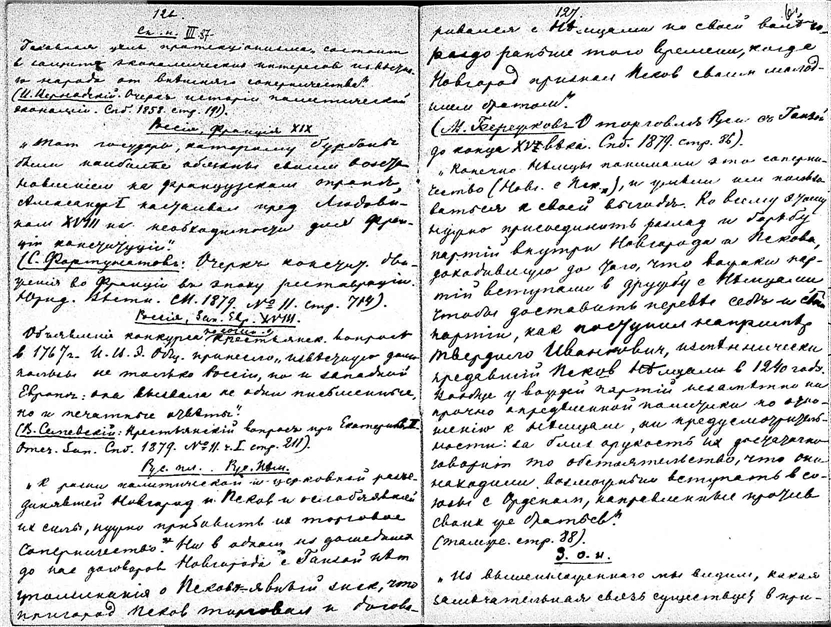 126
Ск. н. III 57
Главная цель протекціонизма состоитъ
въ защитѣ экономическихъ интересовъ извѣстна-
го народа отъ внѣшняго соперничества".
(И. Вернадскій. Очеркъ исторіи политической
экономіи. Спб. 1858. стр. 191).
Россія, Франція XIX
"Тотъ государь, которому Бурбоны
были наиболѣе обязаны своимъ возста-
новленіемъ на французскомъ тронѣ,
Александръ I настаивалъ предъ Людови-
комъ XVIII на необходимости для Фран-
ціи конституціи".
(С. Фортунатовъ: Очеркъ констит. дви-
женія во Франціи въ эпоху реставраціи.
Юрид. Вѣстн. 1879. № 11. стр. 714).
Россія, Зап. Евр. XVIII.
Объявленіе конкурса по крестьянск. вопросу
въ 1767 г. И. В. Э. Общ. принесло "извѣстную долю
пользы не только Россіи, но и западной
Европѣ: она вызвала не одни письменные,
но и печатные отвѣты".
(В. Семевскій: Крестьянскій вопросъ при Екатеринѣ II
Отеч. Зап. Спб. 1879. № 11. ч. I. стр. 211).
Рус. пл. Рус. Нѣм.
"Къ розни политической и церковной разъе-
динявшей Новгородъ и Псковъ и ослаблявшей
ихъ силы, нужно прибавить ихъ торговое
соперничество. Ни въ одномъ изъ дошедшихъ
до насъ договоровъ Новгорода съ Ганзой нѣтъ
упоминанія о Псковѣ - явный знакъ, что
пригородъ Псковъ торговалъ и догова-
127
ривался съ Нѣмцами по своей волѣ го-
раздо раньше того времени, когда
Новгородъ призналъ Псковъ своимъ молод-
шимъ братомъ".
(М. Бережковъ О торговлѣ Руси съ Ганзой
до конца XV вѣка. Спб. 1879. стр. 36).
"Конечно Нѣмцы понимали это соперни-
чество (Новг. съ Пск.), и умѣли имъ пользо-
ваться къ своей выгодѣ. Ко всему этому
нужно присоединить разладъ и борьбу
партій внутри Новгорода и Пскова,
доходившую до того, что вожаки пар-
тій вступали въ дружбу съ Нѣмцами
чтобы доставить перевѣсъ себѣ и своей
партіи, какъ поступилъ напримѣръ
Твердило Иванковичъ, измѣннически
предавшій Псковъ Нѣмцамъ въ 1240 году.
Вообще у вождей партій незамѣтно ни
прочно опредѣленной политики по отно-
шенію къ Нѣмцамъ, ни предусмотритель-
ности: за близорукость ихъ достаточно
говоритъ то обстоятельство, что они
находили возможнымъ вступать въ со-
юзы съ Орденомъ, направленные противъ
своихъ же братьевъ".
(Тамже. стр. 38).
З. о. н.
"Изъ вышеизложеннаго мы видимъ, какая
замѣчательная связь существуетъ въ при-